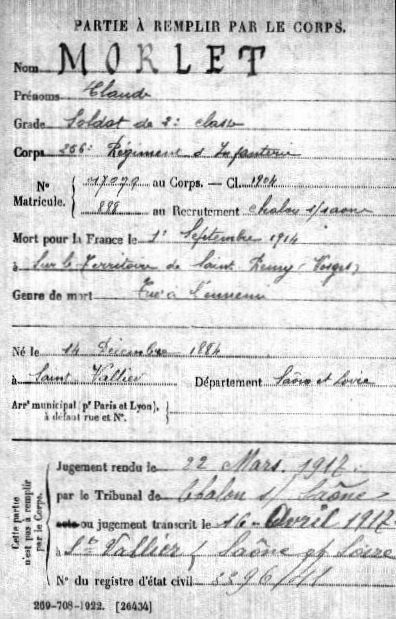 PARTIE À REMPLIR PAR LE CORPS.
Nom MORLET
Prénoms Claude
Grade Soldat de 2e classe
Corps 256e Régiment d'Infanterie
No Matricule. { 017079 au Corps. — Cl. 1904
888 au Recrutement Chalon s/saone
Mort pour la France le 1er Septembre 1914
à Sur le Territoire de Saint Remy (Vosges)
Genre de mort Tué à l'ennemi
Né le 14 Décembre 1884
à Saint Vallier Département Saône et Loire
Arrt municipal (pr Paris et Lyon), à défaut rue et No. {
Cette partie n'est pas à remplir par le Corps.
Jugement rendu le 22 Mars 1917.
par le Tribunal de Chalon s/ Saône
ou jugement transcrit le 16 - Avril 1917
à St Vallier ( Saône et Loire
No du registre d'état civil
269-708-1922. [26434]